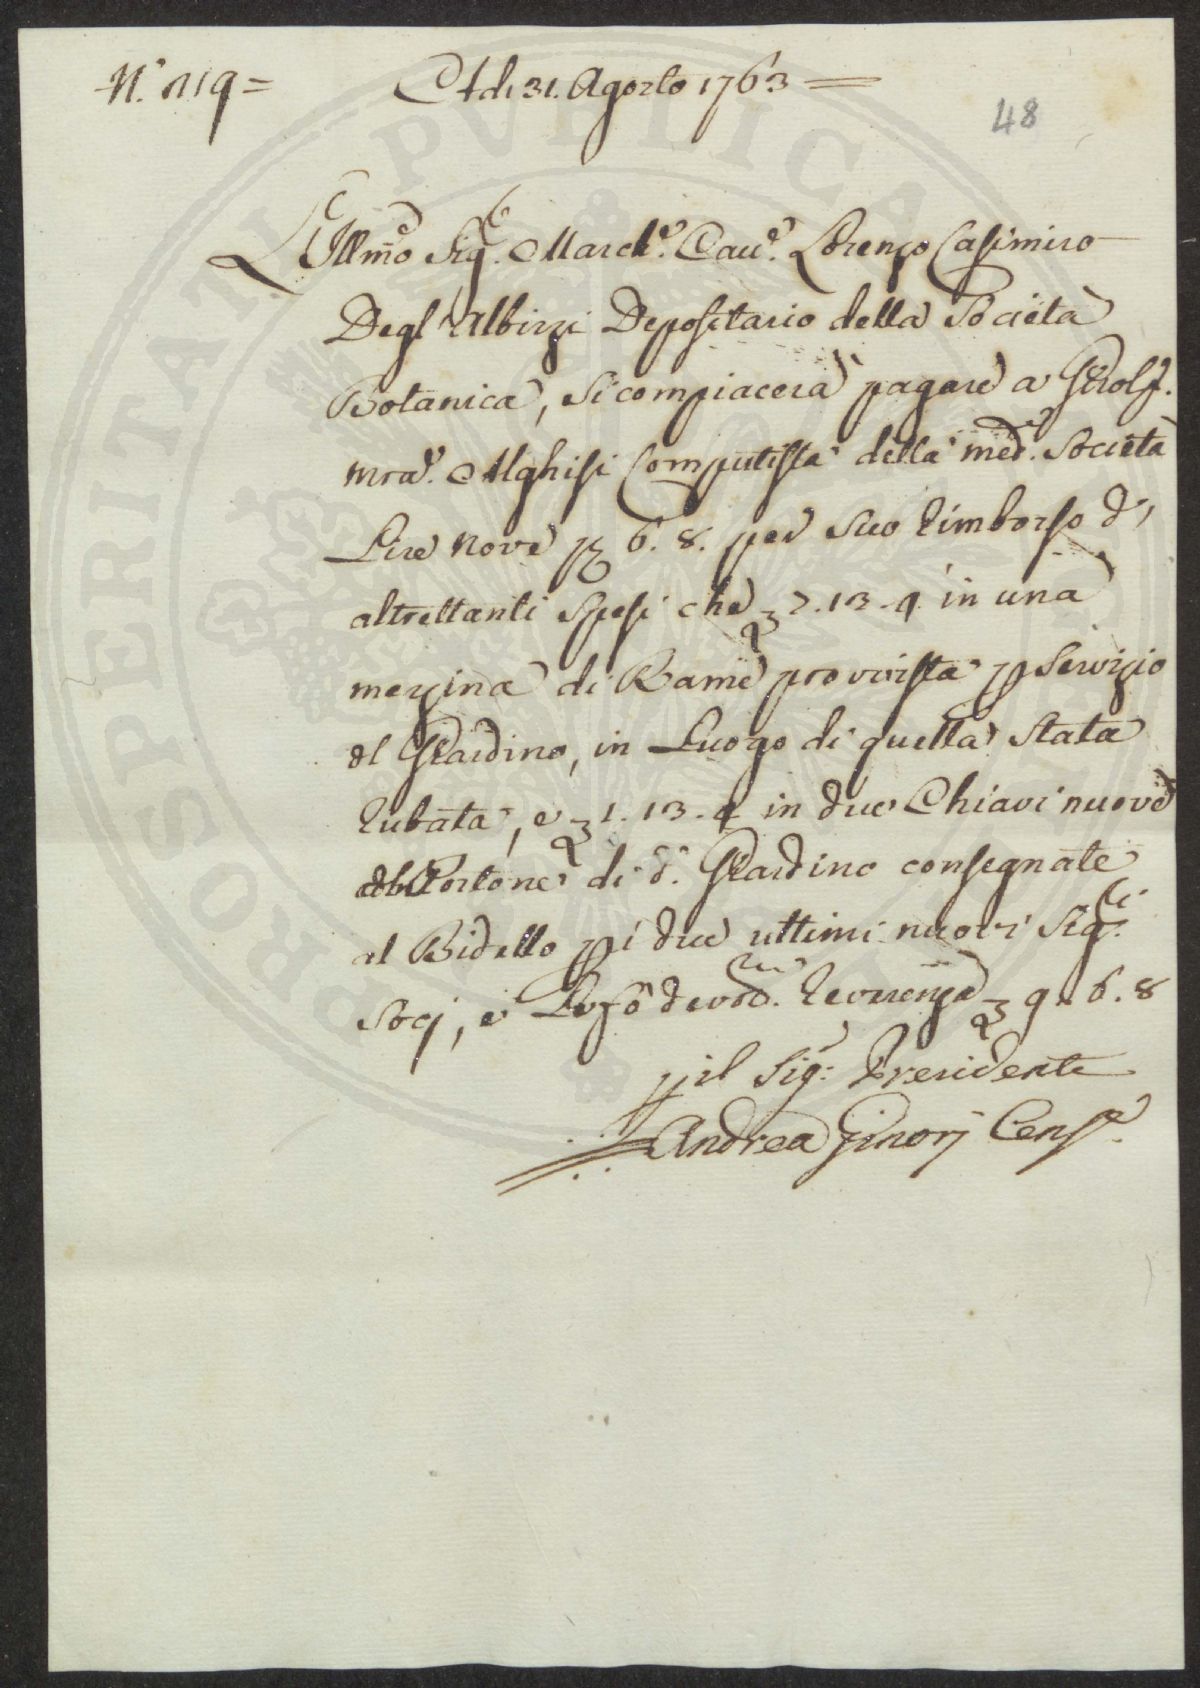 N.° 119=
A dì 31. Agosto 1763=
48
L'Illmo Sig.e March.e Cav.e Lorenzo Casimiro
Degl'Albizzi Depositario della Società
Botanica, si compiacerà pagare a Girol.
Alghisi Computista della med.a Società
Lire nove 6. 8. per suo rimborso d'
altrettanti spesi che 7. 13. 4 in una
mezzina di Rame provvista p servizio
del Giardino, in Luogo di quella stata
rubata, e 1. 13. 4 in due Chiavi nuove
del Portone di d.o Giardino consegnate
al Bidello p i due ultimi nuovi Sig.ri
Socj, e reverenza 9. 6. 8
p il Sig.r Presidente
Andrea Ginorj Cens.e
PROSPERITATI PVBLICAE